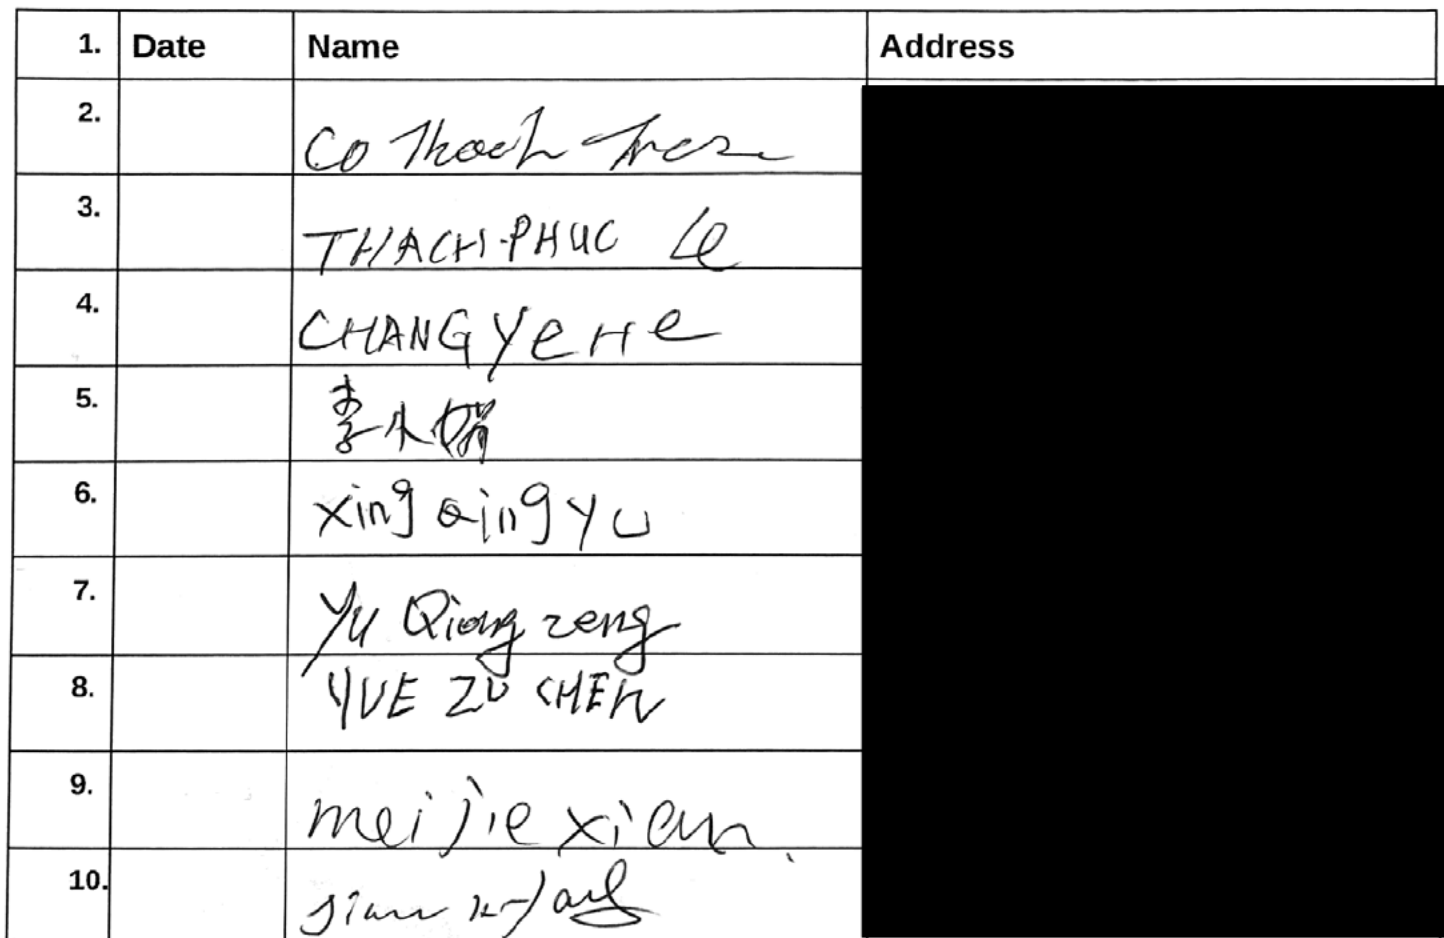 1. Date Name Address
2. Co Thach
3. THACH-PHUC Le
4. CHANG Ye He
5. 李小娟
6. xing Qing Yu
7. Yu Qiong zeng
8. YUE ZU CHEN
9. mei jie xian
10.